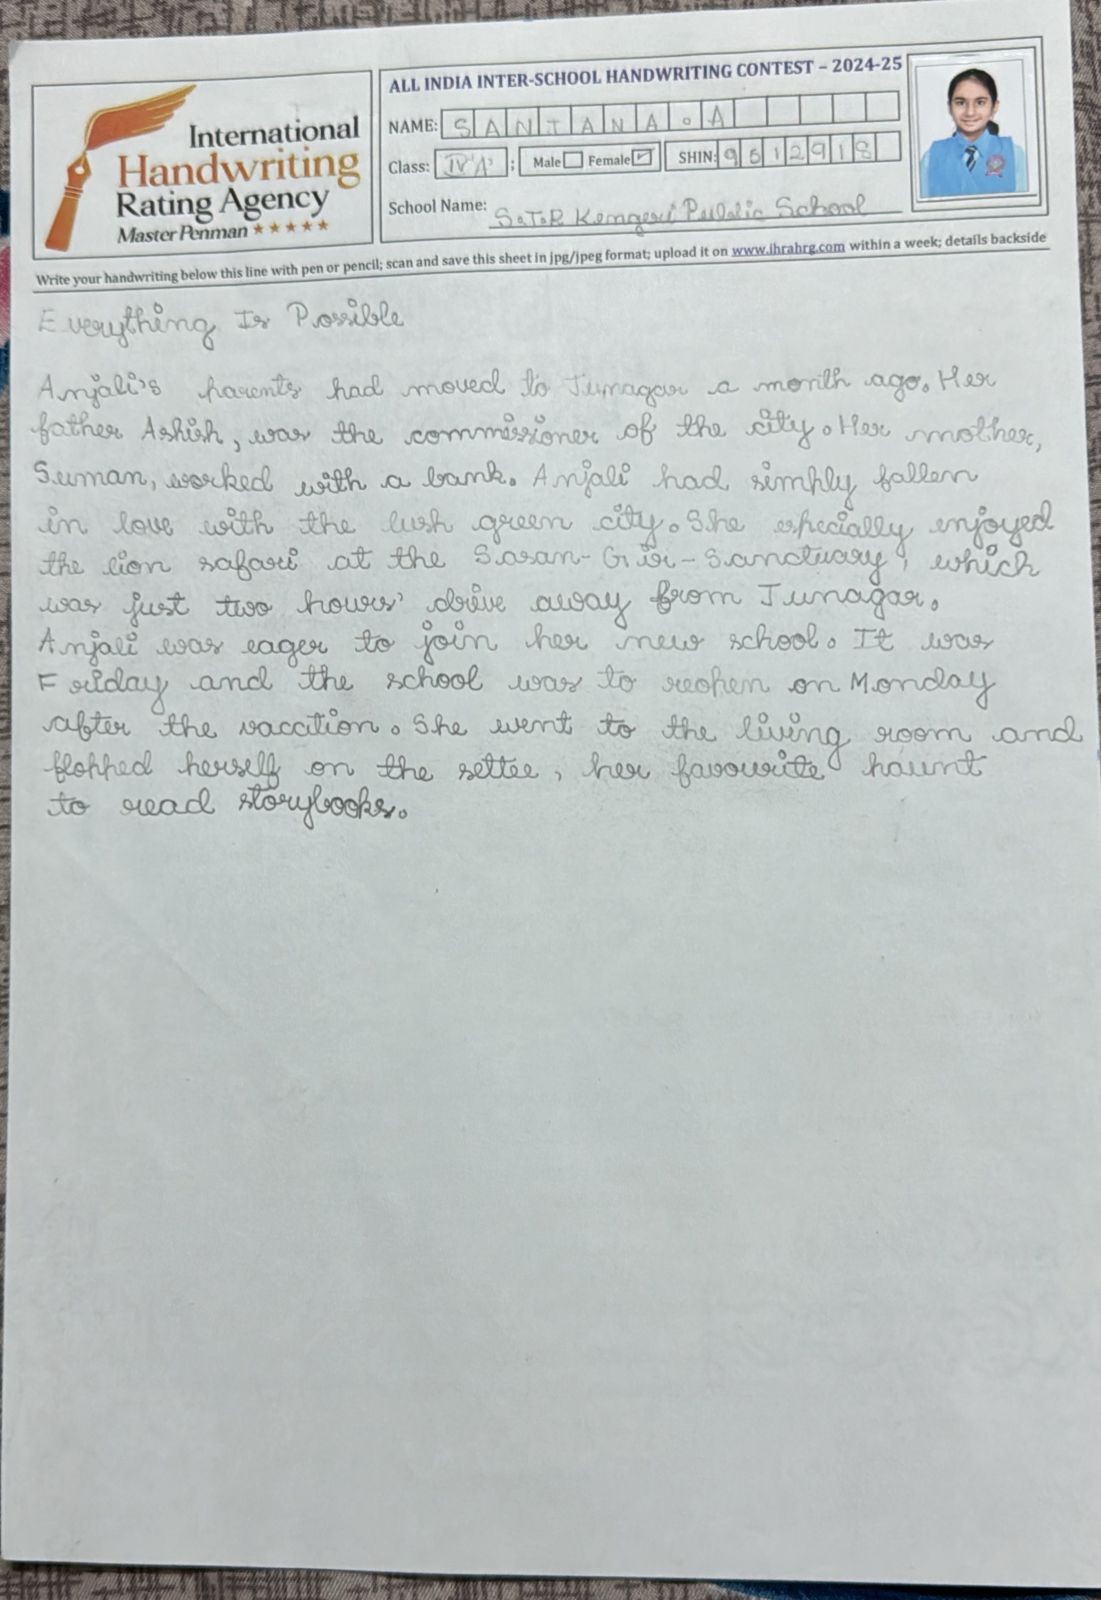 International
Handwriting
Rating Agency
Master Penman ★★★★★
ALL INDIA INTER-SCHOOL HANDWRITING CONTEST – 2024-25
NAME: SANTANA.A
Class: IV 'A' ; Male Female ✓ SHIN: 9612918
School Name: S.J.R Kengeri Public School
Write your handwriting below this line with pen or pencil; scan and save this sheet in jpg/jpeg format; upload it on www.ihrahrg.com within a week; details backside
Everything Is Possible
Anjali's parents had moved to Junagar a month ago. Her
father Ashish, was the commissioner of the city. Her mother,
Suman, worked with a bank. Anjali had simply fallen
in love with the lush green city. She especially enjoyed
the lion safari at the Sasan-Gir-Sanctuary, which
was just two hours' drive away from Junagar.
Anjali was eager to join her new school. It was
Friday and the school was to reopen on Monday
after the vaccition. She went to the living room and
flopped herself on the settee, her favourite haunt
to read storybooks.